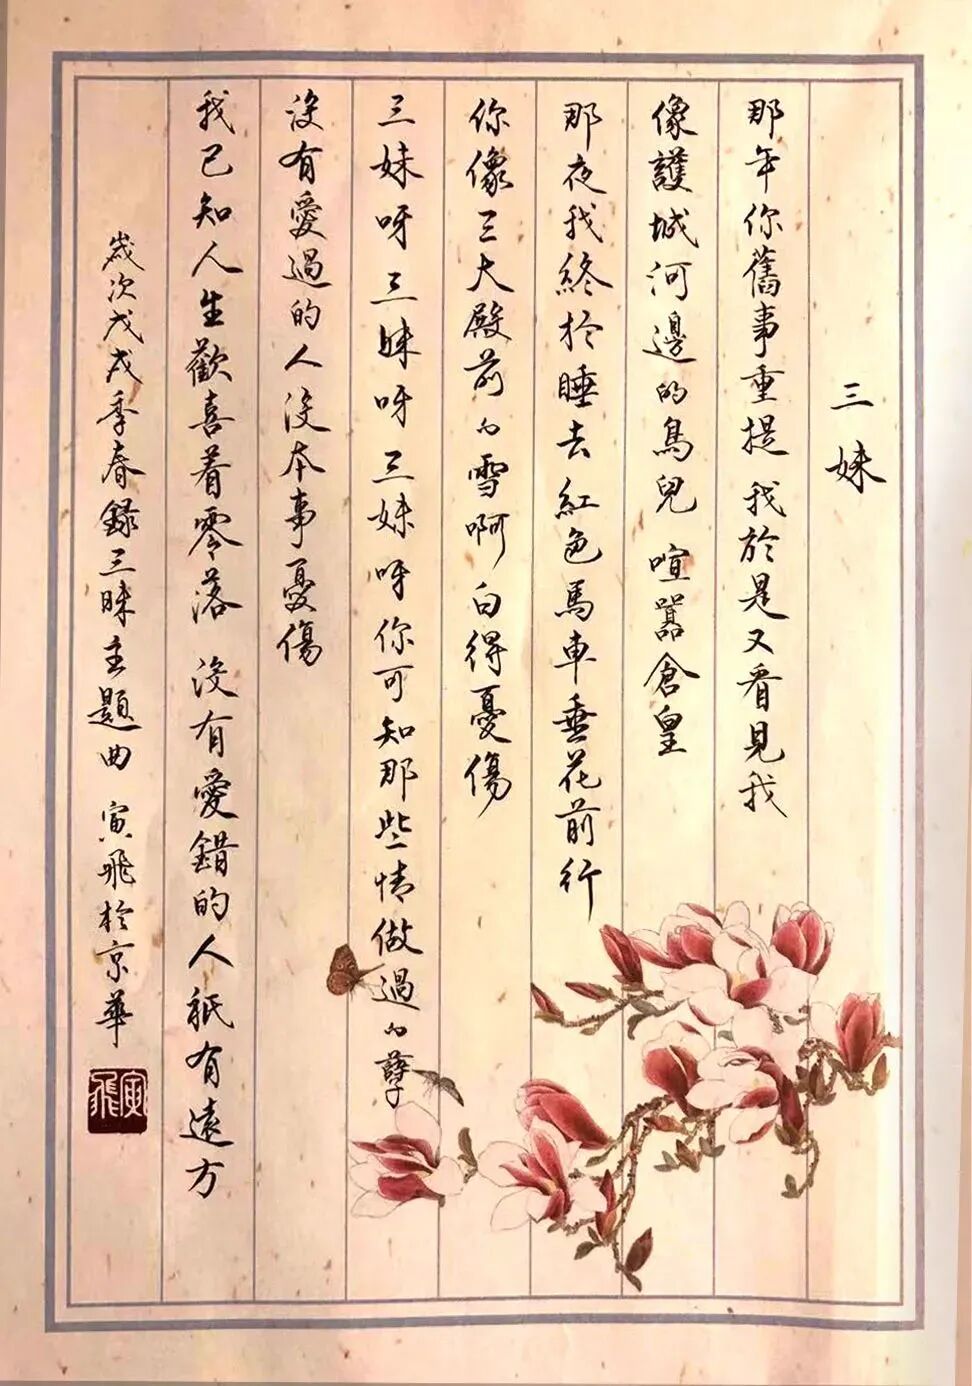 三妹
那年你舊事重提 我於是又看見我
像護城河邊的鳥兒 喧囂倉皇
那夜我終於睡去紅色馬車垂花前行
你像三大殿前的雪啊白得憂傷
三妹呀三妹呀三妹呀你可知那些情做過的孽
沒有愛過的人沒本事憂傷
我已知人生歡喜着零落 沒有愛錯的人祇有遠方
歲次戊戌季春錄三昧主題曲 寅飛於京華
寅飛